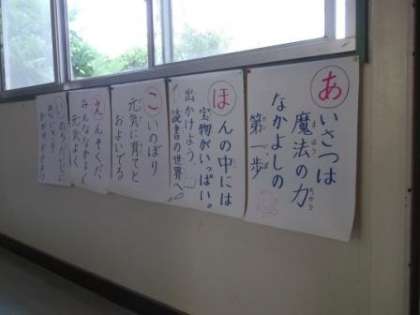 あいさつは
魔法の力
なかよしの
第一歩
ほんの中には
宝物がいっぱい。
出かけよう……
読書の世界へ。
こいのぼり
元気に育てと
およいでる
えんそくだ
みんななかよく
元気よく